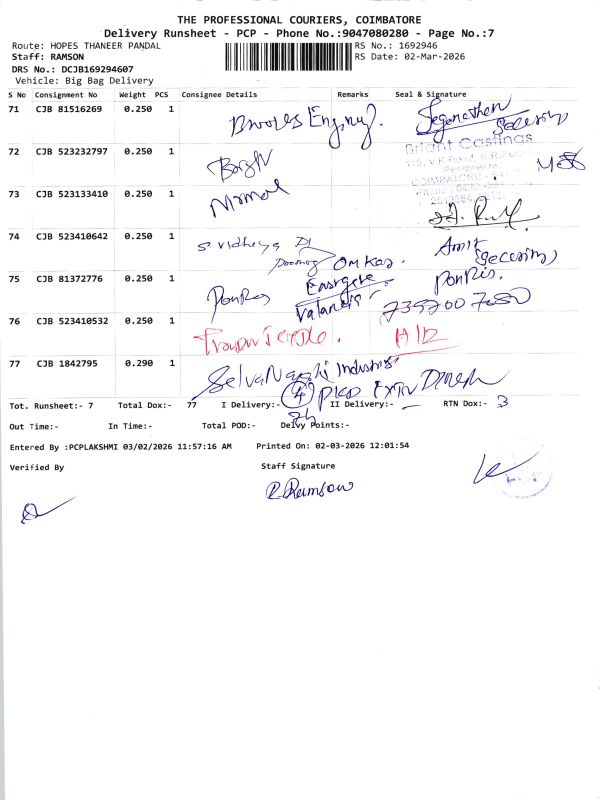 THE PROFESSIONAL COURIERS, COIMBATORE
Delivery Runsheet - PCP - Phone No.:9047080280 - Page No.:7
Route: HOPES THANEER PANDAL RS No.: 1692946
Staff: RAMSON RS Date: 02-Mar-2026
DRS No.: DCJB169294607
Vehicle: Big Bag Delivery
S No Consignment No Weight PCS Consignee Details Remarks Seal & Signature
71 CJB 81516269 0.250 1 Jeganathan
Security
Bright Castings
72 CJB 523232797 0.250 1
73 CJB 523133410 0.250 1 Nirmal
74 CJB 523410642 0.250 1 Omkar. Amit
(Security)
75 CJB 81372776 0.250 1 PonRis Eastgate PonRis.
76 CJB 523410532 0.250 1 A/12
77 CJB 1842795 0.290 1 Selva Industries
Tot. Runsheet:- 7 Total Dox:- 77 I Delivery:- II Delivery:- RTN Dox:- 3
74
Out Time:- In Time:- Total POD:- Delvy Points:-
Entered By :PCPLAKSHMI 03/02/2026 11:57:16 AM Printed On: 02-03-2026 12:01:54
Verified By Staff Signature
R. Ramson